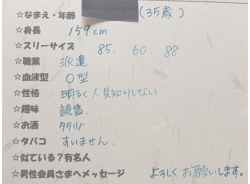 ☆なまえ・年齢 (35歳)
☆身長 159cm
☆スリーサイズ 85. 60. 88
☆職業 派遣
☆血液型 O型
☆性格 明るく人見知りしない
☆趣味 読書
☆お酒 少々
☆タバコ すいません。
☆似ている?有名人
☆男性会員さまへメッセージ よろしくお願いします。